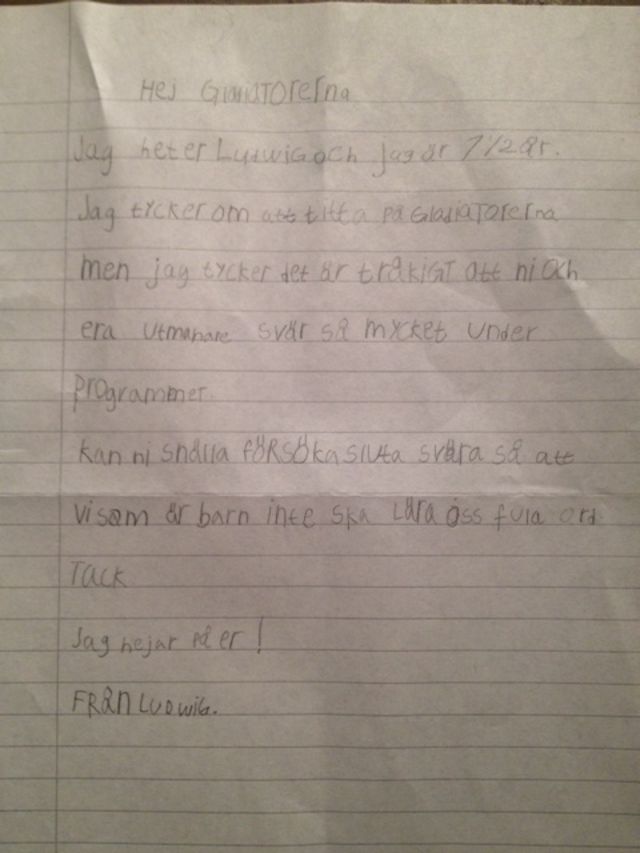 Hej Gladiatorerna
Jag heter Ludwig och jag är 7 1/2 år.
Jag tycker om att titta på Gladiatorerna
men jag tycker det är tråkigt att ni och
era utmanare svär så mycket under
programmet.
kan ni snälla försöka sluta svära så att
vi som är barn inte ska lära oss fula ord.
Tack
Jag hejar på er!
FRån Ludwig.